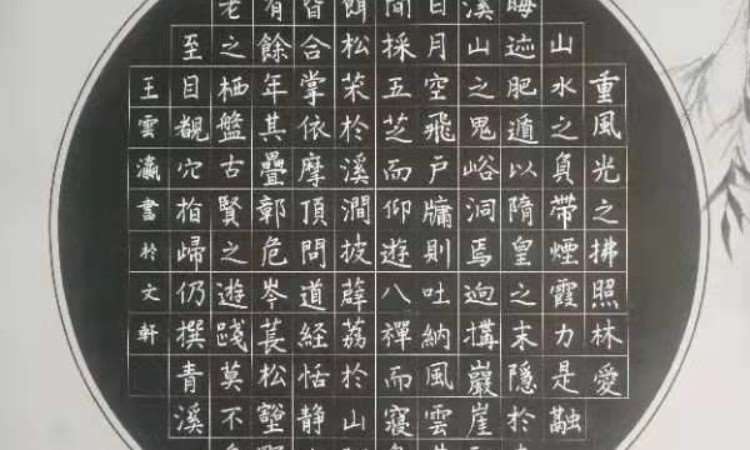 重風光之拂照林愛
山水之負帶煙霞力是融
晦迹肥遁以隋皇之末隱於
溪山之鬼峪洞焉迥搆巖崖
日月空飛戶牖則吐納風雲
間採五芝而仰遊八禪而寝
餌松苿於溪澗披薜荔於山
皆合掌依摩頂問道経恬静
有餘年其疊鄣危岑萇松壑
老之栖盤古賢之遊踐莫不
至目覩穴指歸仍撰青溪
王雲瀛書於文軒